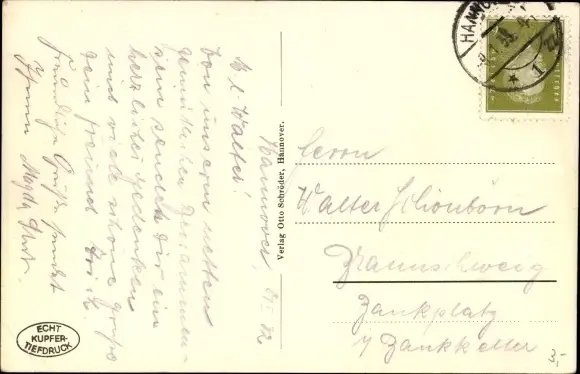 Hannover, 6/I 32
M. l. Walter!
Von unserm netten
gemütlichen Zusammen-
sein sendet dir ein
herzliches Gedenken
und viele schöne Grüße
dein Freund
Freundliche Grüße sendet
Ihnen Magda
Verlag Otto Schröder, Hannover.
HANNOVER
1
Herrn
Walter Schönborn
Braunschweig
Bankplatz
Bankkeller
ECHT
KUPFER-
TIEFDRUCK
3,-